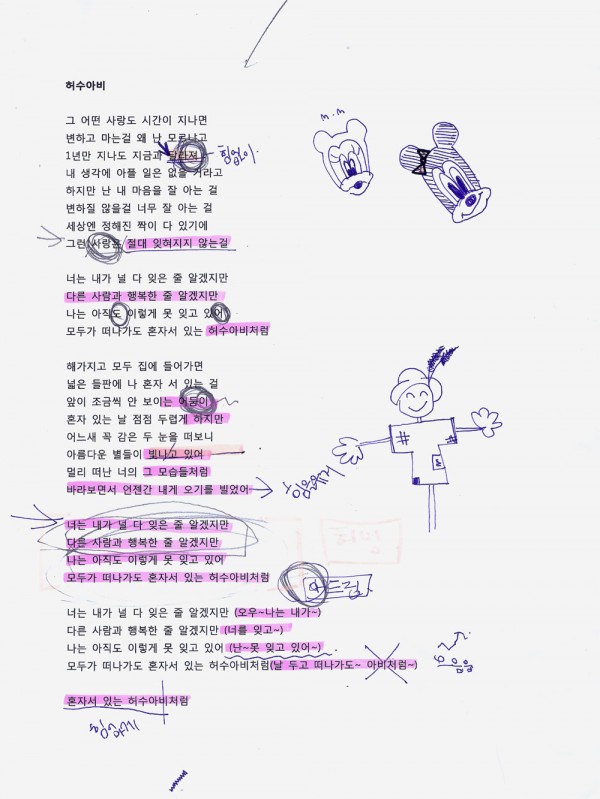 허수아비
그 어떤 사랑도 시간이 지나면
변하고 마는걸 왜 난 모르냐고
1년만 지나도 지금과 달라져 힘없이
내 생각에 아플 일은 없을 거라고
하지만 난 내 마음을 잘 아는 걸
변하질 않을걸 너무 잘 아는 걸
세상엔 정해진 짝이 다 있기에
그런 사랑은 절대 잊혀지지 않는걸
너는 내가 널 다 잊은 줄 알겠지만
다른 사람과 행복한 줄 알겠지만
나는 아직도 이렇게 못 잊고 있어
모두가 떠나가도 혼자서 있는 허수아비처럼
해가지고 모두 집에 들어가면
넓은 들판에 나 혼자 서 있는 걸
앞이 조금씩 안 보이는 어둠이
혼자 있는 날 점점 두렵게 하지만
어느새 꼭 감은 두 눈을 떠보니
아름다운 별들이 빛나고 있어
멀리 떠난 너의 그 모습들처럼
바라보면서 언젠간 내게 오기를 빌었어
너는 내가 널 다 잊은 줄 알겠지만
다른 사람과 행복한 줄 알겠지만
나는 아직도 이렇게 못 잊고 있어
모두가 떠나가도 혼자서 있는 허수아비처럼
너는 내가 널 다 잊은 줄 알겠지만 (오우~나는 내가~)
다른 사람과 행복한 줄 알겠지만 (너를 잊고~)
나는 아직도 이렇게 못 잊고 있어 (난~못 잊고 있어~)
모두가 떠나가도 혼자서 있는 허수아비처럼(날 두고 떠나가도~ 아비처럼~)
혼자서 있는 허수아비처럼